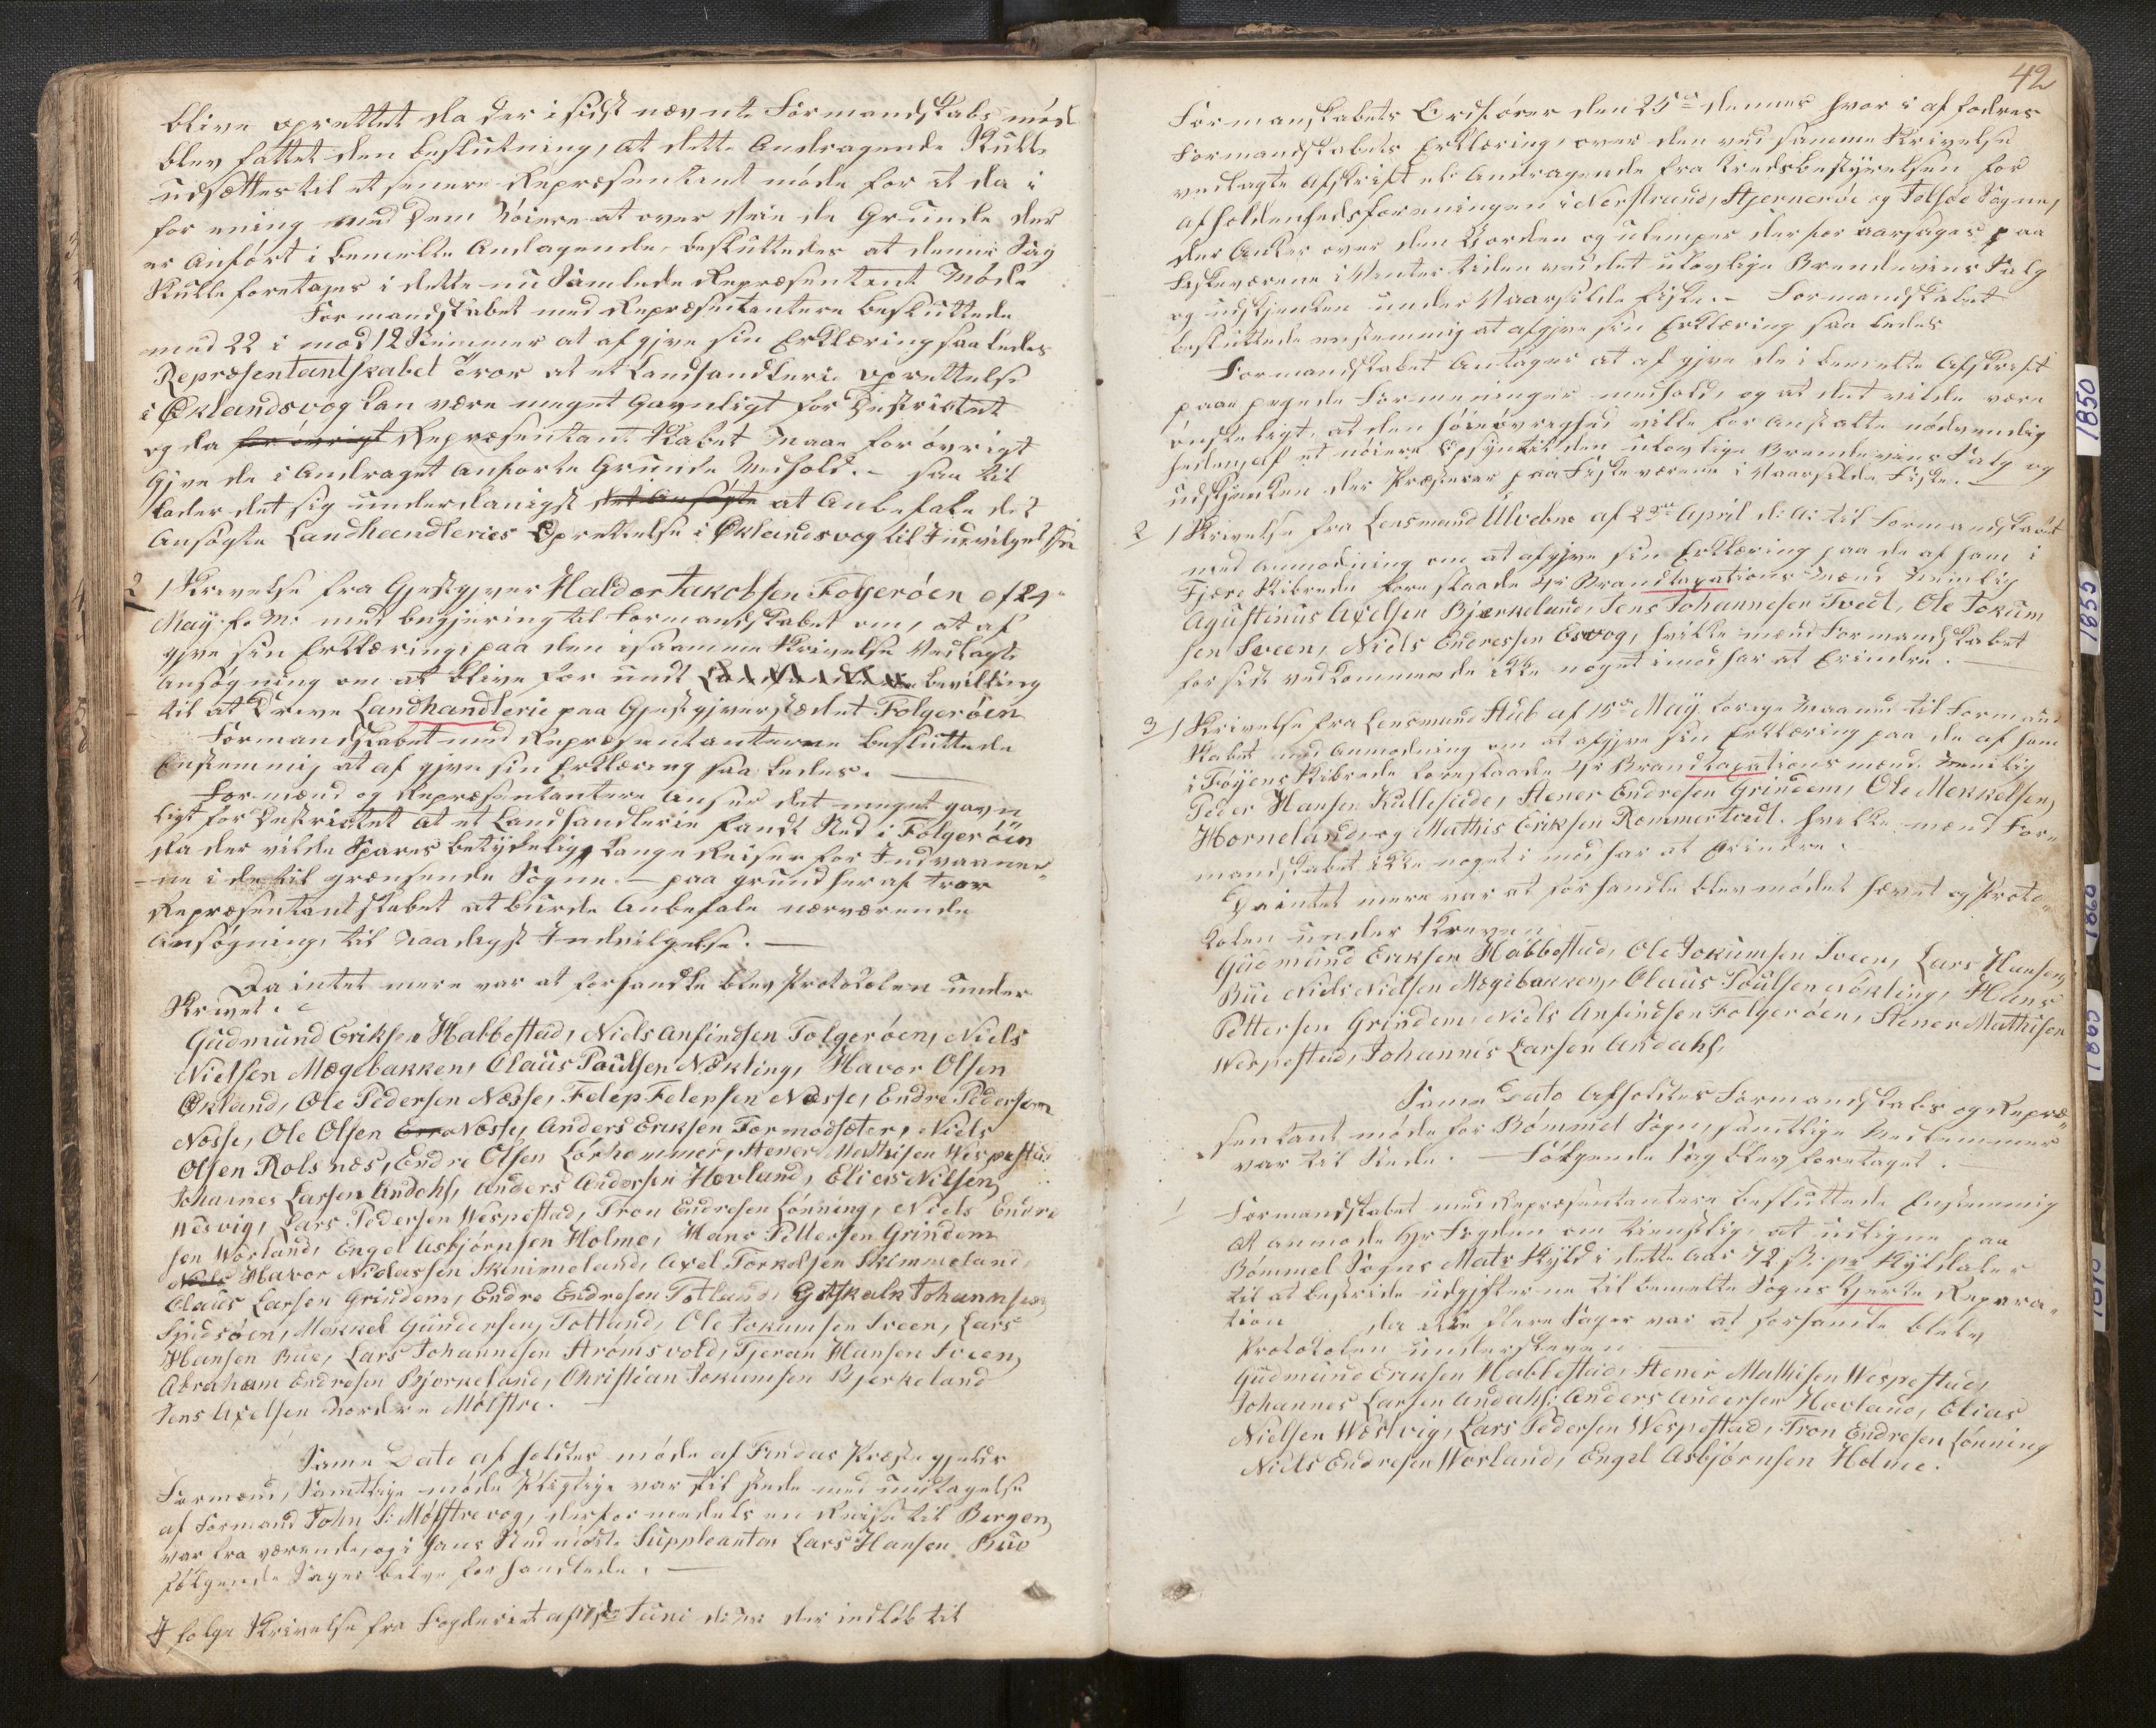 blive oprettet da der i sidst nævnte Formandskabs mød
blev fattet den beslutning, at dette Andragende Skulle
udsættes til et senere Repræsentant møde for at da i
for ening med Dem Nöiere at over Veie de Grunde der
er Anfört i bemelte Andragende, besluttedes at denne Sag
Skulle foretages i dette nu Samlede Repræsentant Møde
Formandskabet med Repræsentantere besluttede
med 22 i mod 12 Stemmer at af gjve sin Erklæring saa ledes
Repræsentantskabet Tror at et Landhandlerie oprettelse
i Øklandsvog kan være meget Gavnligt for Destriktet
og da for övrigt Repræsentant Skabet Maae for övrigt
Gjve de i Andraget Anförte Grunde Medhold. - saa til
lader det sig underdanigst det Ansögte at Anbefale det
Ansögte Landhandleries Oprettelse i Øklandsvog til Indvilgelse
2 / Skrivelse fra Gjestgjver Haldor Jakobsen Folgeröen af 24
May f. M. med begjæring til Formandskabet om, at af
gjve sin Erklæring, paa den i samme Skrivelse Vedlagte
ansögning om at blive for undt bevilling
til at Drive Landhandlerie paa Gjestgjverstædet Folgeröen
Formandskabet med Repræsentanterne besluttede
Enstemmig at af gjve sin Erklæring saa ledes.
Formænd og Repræsentantere Anser det meget gavn
ligt for Destriktet at et Landhandlerie fandt Sted i Folgeröen
da der vilde Spares betydelig lange Reiser for Indvaaner
ne i de til grænsende Sogne. - paa grund her af tror
Repræsentantskabet at burde Anbefale nærværende
Ansögning, til naadigst Indvilgelse.
Da intet mere var at forhandle blev Protokolen under
Skrivet.
Gudmund Eriksen Habbestad, Niels Anfindsen Folgeröen, Niels
Nielsen Mægebakken, Claus Paulsen Nøkling, Havor Olsen
Økland, Ole Pedersen Næsse, Felep Felepsen Næsse, Endre Pedersen
Næsse, Ole Olsen Næsse, Anders Eriksen Tormodsæter, Niels
Olsen Rolsnæs, Endre Olsen Lörhammer, Stener Mathisen Wespestad
Johannes Larsen Andahl, Anders Andersen Hovland, Elias Nilsen
Wesvig, Lars Pedersen Wespestad, Tron Endresen Lönning, Niels Endre
sen Worland, Engel Asbjörnsen Holme, Hans Pettersen Grindem
Niels Havor Nielassen Skimmeland, Axel Torkelsen Skimmeland
Claus Larsen Grindem, Endre Endresen Totland, Gotskalk Johannesen
Spidsöen, Mekkel Gundersen Totland, Ole Jokumsen Sveen, Lars
Hansen Bue, Lars Johannesen Strömsvold, Tjeran Hansen Sveen
Abraham Endresen Bjerkeland, Christian Jokumsen Bjerkeland
Jens Axelsen Nordre Mölstre.
Same Dato af holdtes møde af Findas Præstegjelds
Formænd, Samtlige møde Pligtige var til stede med undtagelse
af Formand John S. Mölstrevog, der formedelst en Reise til Bergen
var fra værende, og i hans Sted mødte Suppleanten Lars Hansen Bue
følgende Sager bleve for handlede.
I følge Skrivelse fra Fogderiet af 17de Juni d: M: der indløb til
42
Formanskabets Ordförer den 25de dennes hvor i af fodres
Formandskabets Erklæring, over den ved samme Skrivelse
vedlagte Afskrift et Andragende fra Kredsbestyrelsen for
afholdenhedsforeningen i Nerstrand, Hjerneröe og Folsöe Sogne,
der Anker over den Uorden og ulemper der for aarsages paa
Fiskeværene i Vinter tiden ved det ulovlige Brændevins Salg
og udskjenken under Vaarsilde fiske. - Formandskabet
besluttede enstemmig at afgjve sin Erklæring saa ledes
Formandskabet Antager at af gjve de i bemelte Afskrift
paa pegede Formeninger medhold, og at det vilde være
önskeligt, at den höie övrighed ville for Anstalte nödvendig
heden af et nöiere Opsyn til den ulovlige Brændevins Salg og
udskjenken der Præsterer paa Fiskeværene i Vaarsilde Fiske.
2 / Skrivelse fra Lensmand Ulvebne af 23de April d: A: til Formandskabet
med Anmodning om at afgjve sin Erklæring paa de af ham i
Fjære Skibrede fore slaade 4re Brandtaxations Mænd Nemlig
Agustinus Axelsen Bjerkeland, Jens Johannesen Tveit, Ole Jokum
sen Sveen, Niels Endresen Esvog, hvilke mænd Formandskabet
for sidt vedkommende ikke noget imod har at Erindre.
3 / Skrivelse fra Lensmand Hub af 15de May forige Maaned til Formand
Skabet med Anmodning om at afgjve sin Erklæring paa de af ham
i Föyens Skibrede foreslaade 4re Brandtaxations mænd Nemlig
Peder Hansen Kulleseide, Stener Endresen Grindem, Ole Mekkelsen
Horneland, og Mathis Eriksen Rommertveit. hvilke mænd For
mandskabet ikke noget i mod har at Erindre.
Da intet mere var at forhandle blev mödet hævet og Proto
kolen under Skreven
Gudmund Eriksen Habbestad, Ole Jokumsen Sveen, Lars Hansen
Bue Niels Nielsen Mægebakken, Claus Poulsen Nökling, Hans
Pettersen Grindem, Niels Anfindsen Folgeröen, Stener Mathisen
Wespestad, Johannes Larsen Andahl,
Same Dato Afholdtes Formandskabs og Repræ
sentant møde for Bömmel Sogn, samtlige Medlemmer
var til Stede. - Følgende Sag blev foretaget.
1 Formandskabet med Repræsentantere besluttede Enstemmig
at anmode Hr Fogden om tienstlig, at udligne paa
Bömmel Sogns Matr Skyld i dette Aar 72 s. pr Skylddaler
til at bestride udgifterne til bemelte Sogns Kjerke Repara
tion da ikke flere Sager var at forhandle blev
Protokolen underskreven
Gudmund Eriksen Habbestad, Stener Mathisen Wespestad,
Johannes Larsen Andahl, Anders Andersen Hovland, Elias
Nielsen Wæstvig, Lars Pedersen Wespestad, Tron Endresen Lönning
Niels Endresen Worland, Engel Asbjörnsen Holme.
1850
1855
1860
1865
1870